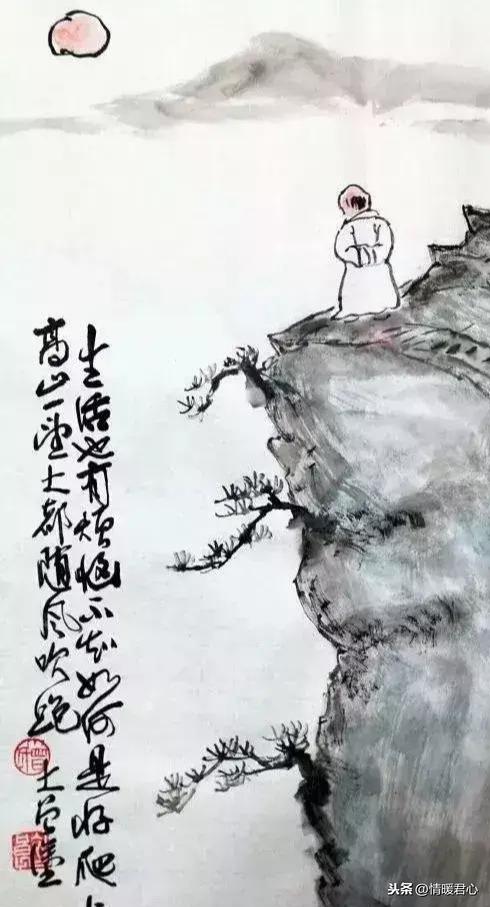 生活也有烦恼不知如何是好爬上
高山一望大都随风吹跑
头条 @情暖君心